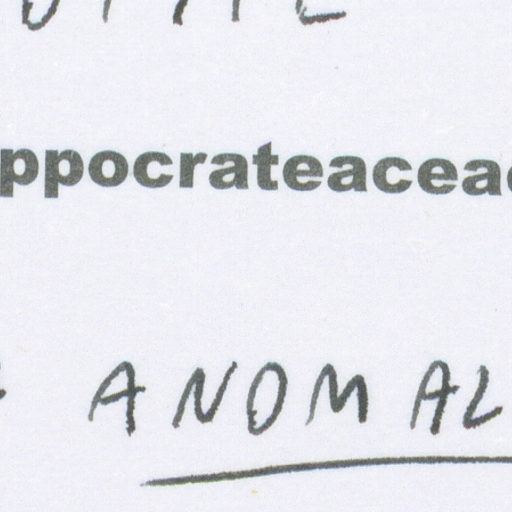 ppocrateacea
ANOMAL